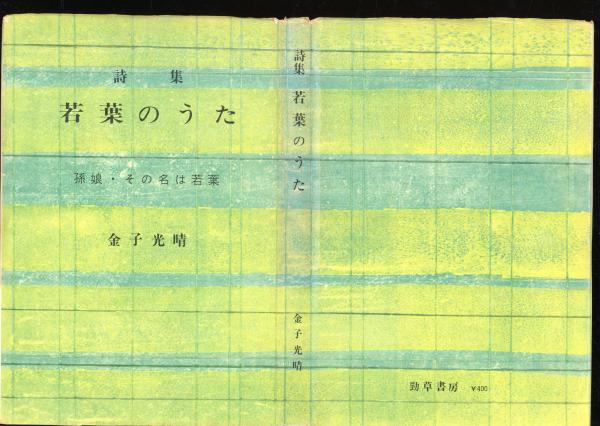 詩集
若葉のうた
孫娘・その名は若葉
金子光晴
詩集 若葉のうた
金子光晴
勁草書房 ¥400